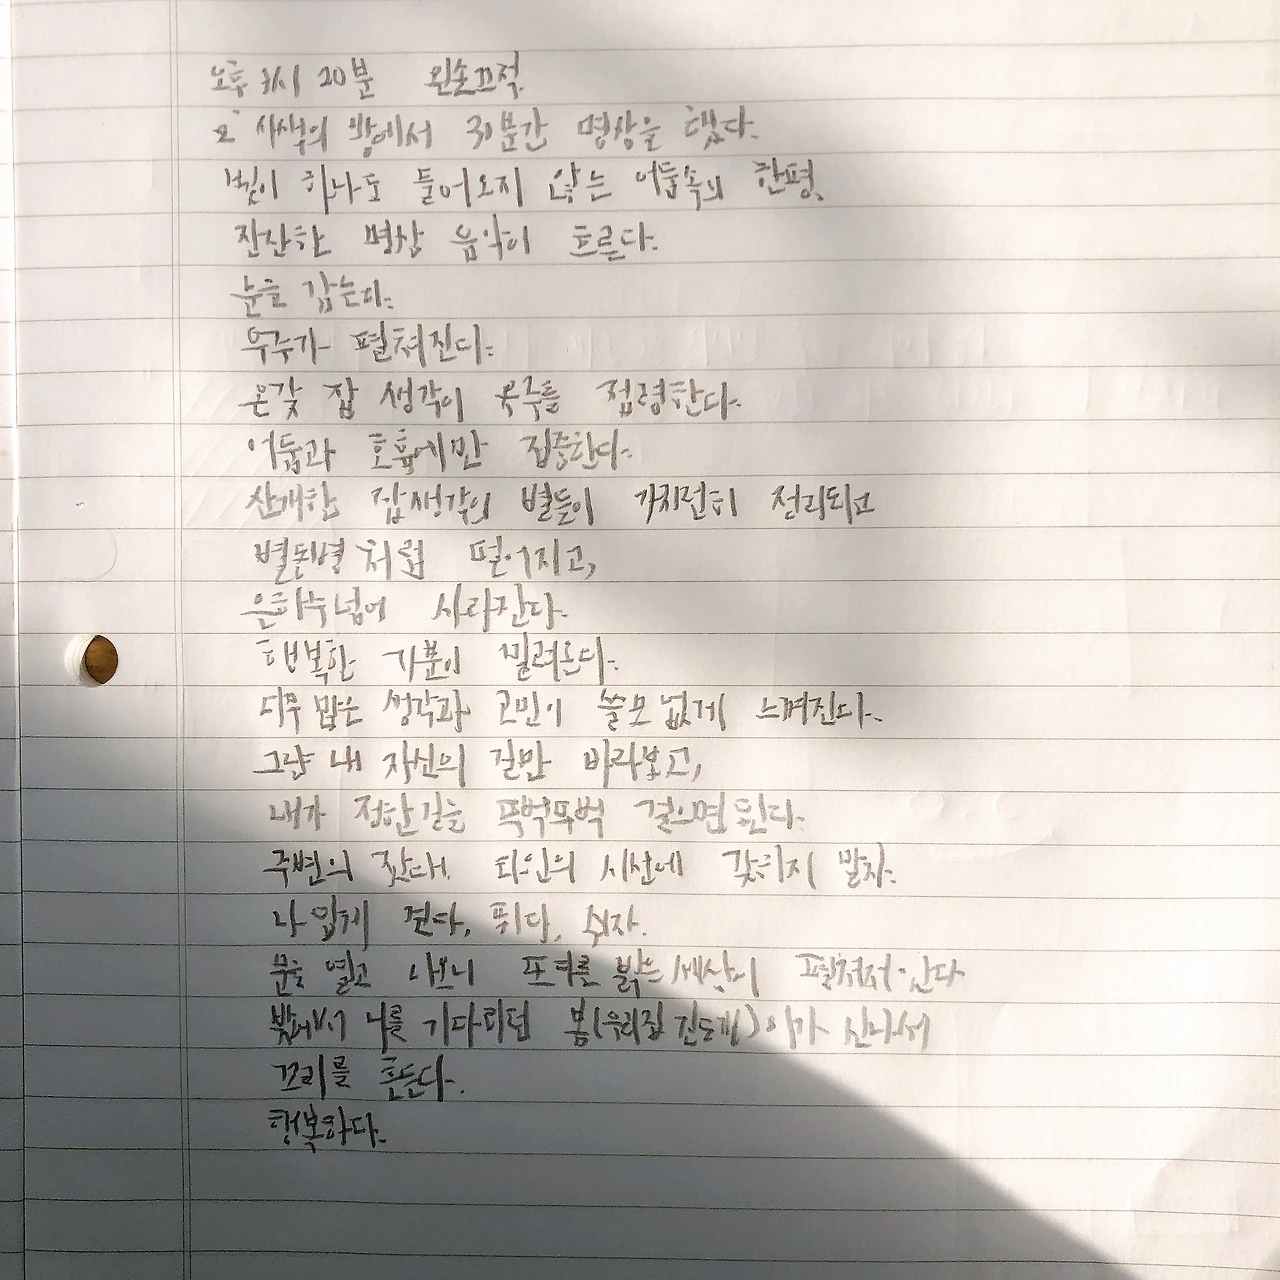 오후 3시 20분 왼손끄적
사색의 방에서 30분간 명상을 했다.
빛이 하나도 들어오지 않는 어둠속의 한평.
잔잔한 명상 음악이 흐른다.
눈을 감는다.
우주가 펼쳐진다.
온갖 잡 생각이 우주를 점령한다.
어둠과 호흡에만 집중한다.
산개한 잡생각의 별들이 가지런히 정리되고
별똥별처럼 떨어지고,
은하수넘어 사라진다.
행복한 기분이 밀려온다.
너무 많은 생각과 고민이 쓸모없게 느껴진다.
그냥 내 자신의 길만 바라보고,
내가 정한길을 뚜벅뚜벅 걸으면된다.
주변의 잣대, 타인의 시선에 갖히지 말자.
나 답게 걷다, 뛰다, 쉬자.
문을 열고 나오니 또다른 밝은세상이 펼쳐져 있다
밖에서 나를 기다리던 봉(우리집 진도개)이가 신나서
꼬리를 흔든다.
행복하다.